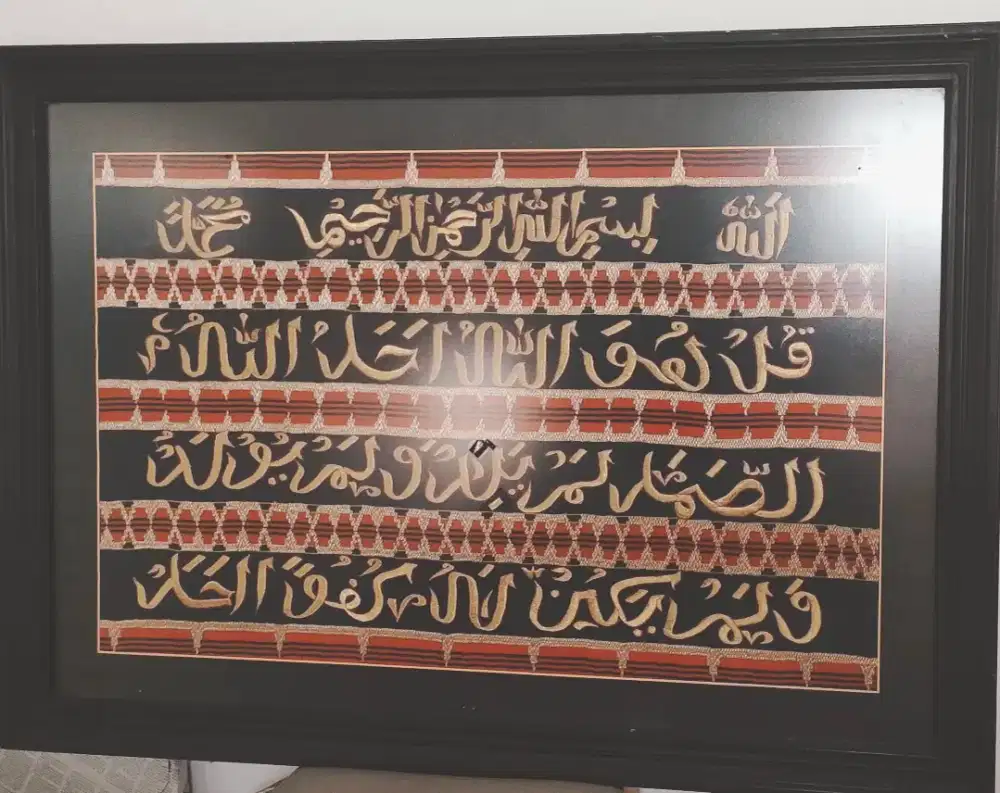 الله بسم الله الرحمن الرحيم محمد
قُلْ هُوَ اللَّهُ أَحَدٌ اللَّهُ
الصَّمَدُ لَمْ يَلِدْ وَلَمْ يُولَدْ
وَلَمْ يَكُنْ لَهُ كُفُوًا أَحَدٌ